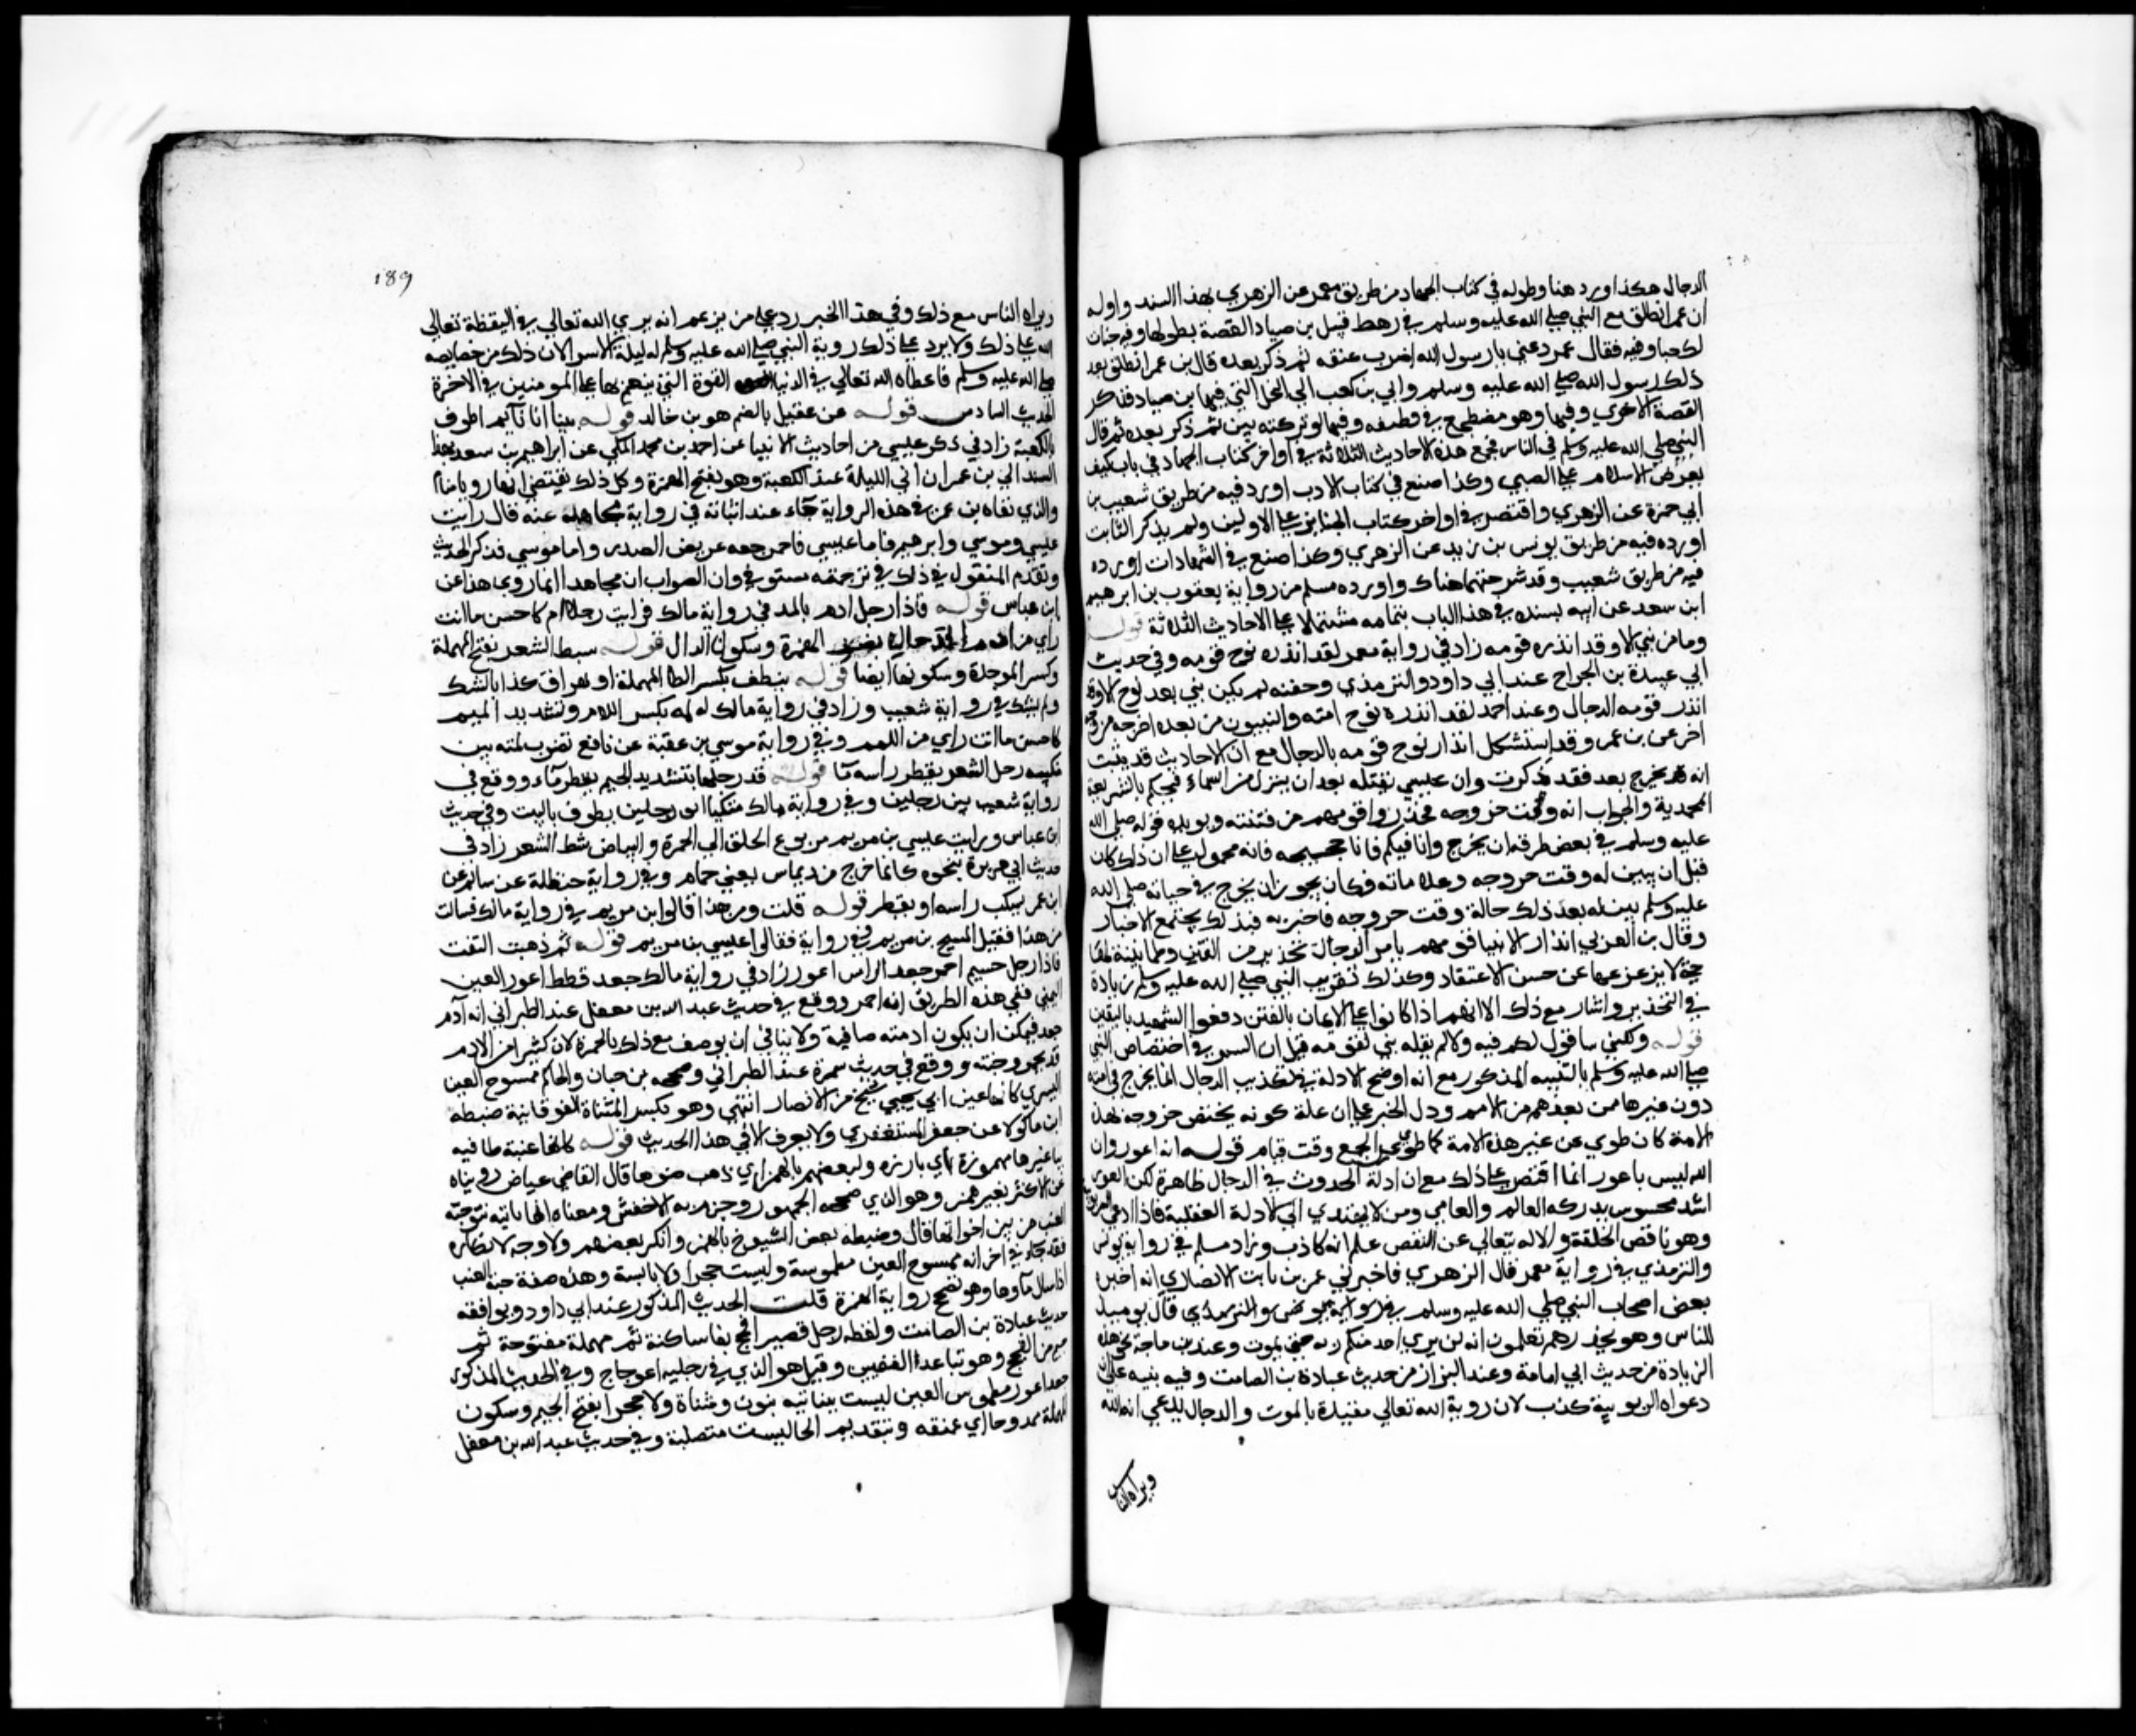 الدجال هكذا اورد هنا وطوله في كتاب الجهاد من طريق معمر عن الزهري بهذا السند واوله
ان عمر انطلق مع النبي صلى الله عليه وسلم في رهط قبل بن صياد القصة بطولها وفيه خبات
لك خبا وفيه فقال عمر دعني يا رسول الله اضرب عنقه ثم ذكر بعده قال بن عمر انطلق بعد
ذلك رسول الله صلى الله عليه وسلم وابي بن كعب الى النخل التي فيها بن صياد فذكر
القصة الاخرى وفيها وهو مضطجع في قطيفه وفيها لو تركته بين ثم ذكر بعده ثم قال
النبي صلى الله عليه وسلم في الناس فجمع هذه الاحاديث الثلاثة في اواخر كتاب الجهاد في باب كيف
يعرض الاسلام على الصبي وكذا صنع في كتاب الادب اورد فيه من طريق شعيب بن
ابي حمزة عن الزهري واقتصر في اواخر كتاب الجنايز على الاولين ولم يذكر الثالث
اورده فيه من طريق يونس بن يزيد عن الزهري وكذا صنع في الشهادات اورده
فيه من طريق شعيب وقد شرحتهما هناك واورده مسلم من رواية يعقوب بن ابرهيم
ابن سعد عن ابيه بسنده في هذا الباب بتمامه مشتملا على الاحاديث الثلاثة قوله
وما من نبي الا وقد انذره قومه زاد في رواية معمر لقد انذره نوح قومه وفي حديث
ابي عبيدة بن الجراح عند ابي داود والترمذي وحسنه لم يكن نبي بعد نوح الا وقد
انذر قومه الدجال وعند احمد لقد انذره نوح امته والنبيون من بعده اخرجه من وجه
اخر عن بن عمر وقد استشكل انذار نوح قومه بالدجال مع ان الاحاديث قد ثبتت
انه يخرج بعد فقد ذكرت وان عيسى يقتله بعد ان ينزل من السماء فيحكم بالشريعة
المحمدية والجواب انه وقت خروجه فحذروا قومهم من فتنته ويويده قوله صلى الله
عليه وسلم في بعض طرقه ان يخرج وانا فيكم فانا حجيجه فانه محمول على ان ذلك كان
قبل ان يبين له وقت خروجه وعلاماته فكان يجوز ان يخرج في حياته صلى الله
عليه وسلم بين له بعد ذلك حالة وقت خروجه فاخبر به فبذلك يجتمع الاخبار
وقال بن العربي انذار الانبيا قومهم بامر الدجال تحذير من الفتن وطمانينة لها
حتى لا يزعزعها عن حسن الاعتقاد وكذلك تقريب النبي صلى الله عليه وسلم زيادة
في التحذير واشار مع ذلك الا انهم اذا كانوا على الايمان بالفتن دفعوا الشبهة باليقين
قوله ولكني ساقول لكم فيه قولا لم يقله نبي لقومه قيل ان السر في اختصاص النبي
صلى الله عليه وسلم بالتنبيه المذكور مع انه اوضح الادلة في تكذيب الدجال انما يخرج في امته
دون غيرها ممن بعدهم من الامم ودل الخبر على ان علة كونه يختص خروجه بهذه
الامة كان طوي عن غير هذه الامة كما طوي على الجميع وقت قيام قوله انه اعور وان
الله ليس باعور انما اقتصر على ذلك مع ان ادلة الحدوث في الدجال ظاهرة لكن العور
اشد محسوس يدركه العالم والعامي ومن لا يهتدي الى الادلة العقلية فاذا ادعى الربوبية
وهو ناقص الخلقة والاله يتعالى عن النقص علم انه كاذب وزاد مسلم في رواية يونس
والترمذي في رواية معمر قال الزهري فاخبرني عمر بن ثابت الانصاري انه اخبره
بعض اصحاب النبي صلى الله عليه وسلم قال يوميذ
للناس وهو يحذرهم تعلمون انه لن يرى احد منكم ربه حتى يموت وعند بن ماجة نحو هذه
الزيادة من حديث ابي امامة وعند البزار من حديث عبادة بن الصامت وفيه تنبيه على ان
دعواه الربوبية كذب لان روية الله تعالى مقيدة بالموت والدجال يدعي انه الله
ويراه الناس
189
ويراه الناس مع ذلك وفي هذا الخبر رد على من يزعم انه يرى الله تعالى في اليقظة تعالى
الله على ذلك ولا يرد على ذلك روية النبي صلى الله عليه وسلم له ليلة الاسرا لان ذلك من خصايصه
صلى الله عليه وسلم فاعطاه الله تعالى في الدنيا القوة التي ينعم بها على المومنين في الاخرة
الحديث السادس قوله عن عقيل بالضم هو بن خالد قوله بينا انا نايم اطوف
بالكعبة زاد في ذكر عيسى من احاديث الانبيا عن احمد بن محمد المكي عن ابراهيم بن سعد بهذا
السند الى بن عمر ان اني الليلة عند الكعبة وهو بفتح الهمزة وكل ذلك يقتضي انها رويا منام
والذي نفاه بن عمر في هذه الرواية جاء عنه اثباته في رواية مجاهد عنه قال رايت
عيسى وموسى وابرهيم فاما عيسى فاحمر جعد عريض الصدر واما موسى فذكر الحديث
وتقدم المنقول في ذلك في ترجمته مستوفى وان الصواب ان مجاهدا انما روى هذا عن
ابن عباس قوله فاذا رجل ادم بالمد في رواية مالك فرايت رجلا ادم كاحسن ما انت
راي من ادم الرجال بضم الهمزة وسكون الدال قوله سبط الشعر بفتح المهملة
وكسر الموحدة وسكونها ايضا قوله ينطف بكسر الطا المهملة او يهراق كذا بالشك
ولم يشك في رواية شعيب وزاد في رواية مالك له لمه بكسر اللام وتشديد الميم
كاحسن ما انت راي من اللمم وفي رواية موسى بن عقبة عن نافع تضرب لمته بين
منكبيه رجل الشعر يقطر راسه ما قوله قد رجلها بتشديد الجيم يقطر ماء ووقع في
رواية شعيب بين رجلين وفي رواية مالك متكيا على رجلين يطوف بالبيت وفي حديث
ابن عباس ورايت عيسى بن مريم مربوع الخلق الى الحمرة والبياض سبط الشعر زاد في
حديث ابي هريرة بنحوه كانما خرج من ديماس يعني حمام وفي رواية حنظلة عن سالم عن
ابن عمر يسكب راسه او يقطر قوله قلت من هذا قالوا بن مريم في رواية مالك فسالت
من هذا فقيل المسيح بن مريم في رواية فقالوا عيسى بن مريم قوله ثم ذهبت التفت
فاذا رجل جسيم احمر جعد الراس اعور زاد في رواية مالك جعد قطط اعور العين
اليمنى ففي هذه الطريق انه احمر ووقع في حديث عبد الله بن مغفل عند الطبراني انه آدم
جعد فيمكن ان يكون ادمته صافية ولا ينافي ان يوصف مع ذلك بالحمرة لان كثيرا من الادم
قد يحمر وجنته ووقع في حديث سمرة عند الطبراني وصححه بن حبان والحاكم ممسوح العين
اليسرى كانها عين ابي يحيى شيخ من الانصار انتهى وهو بكسر المثناة الفوقانية ضبطه
ابن ماكولا عن جعفر المستغفري ولا يعرف الا في هذا الحديث قوله كانها عنبة طافيه
بيا غير مهموزة اي بارزه ولبعضهم بالهمز اي ذهب ضوها قال القاضي عياض رويناه
عن الاكثر بغير همز وهو الذي صححه الجمهور وجزم به الاخفش ومعناه انها ناتيه نتوحبة
العنب من بين اخواتها قال وضبطه بعض الشيوخ بالهمز وانكر بعضهم ولا وجه لانكاره
فقد جاء في اخر انه ممسوح العين مطموسة وليست حجرا ولا يابسة وهذه صفة حبة العنب
اذا سال ماوها وهو تصحح رواية الهمزة قلت الحديث المذكور عند ابي داود ويوافقه
حديث عبادة بن الصامت ولفظه رجل قصير افحج بفا ساكنة ثم مهملة مفتوحة ثم
جيم من الفحج وهو تباعد الفخذين وقيل هو الذي في رجليه اعوجاج وفي الحديث المذكور
جعد اعور مطموس العين ليست بناتيه بنون ومثناة ولا حجرا بفتح الجيم وسكون
المهملة ممدودا اي عمقه وبتقديم الحا ليست متصلبة وفي حديث عبد الله بن مغفل